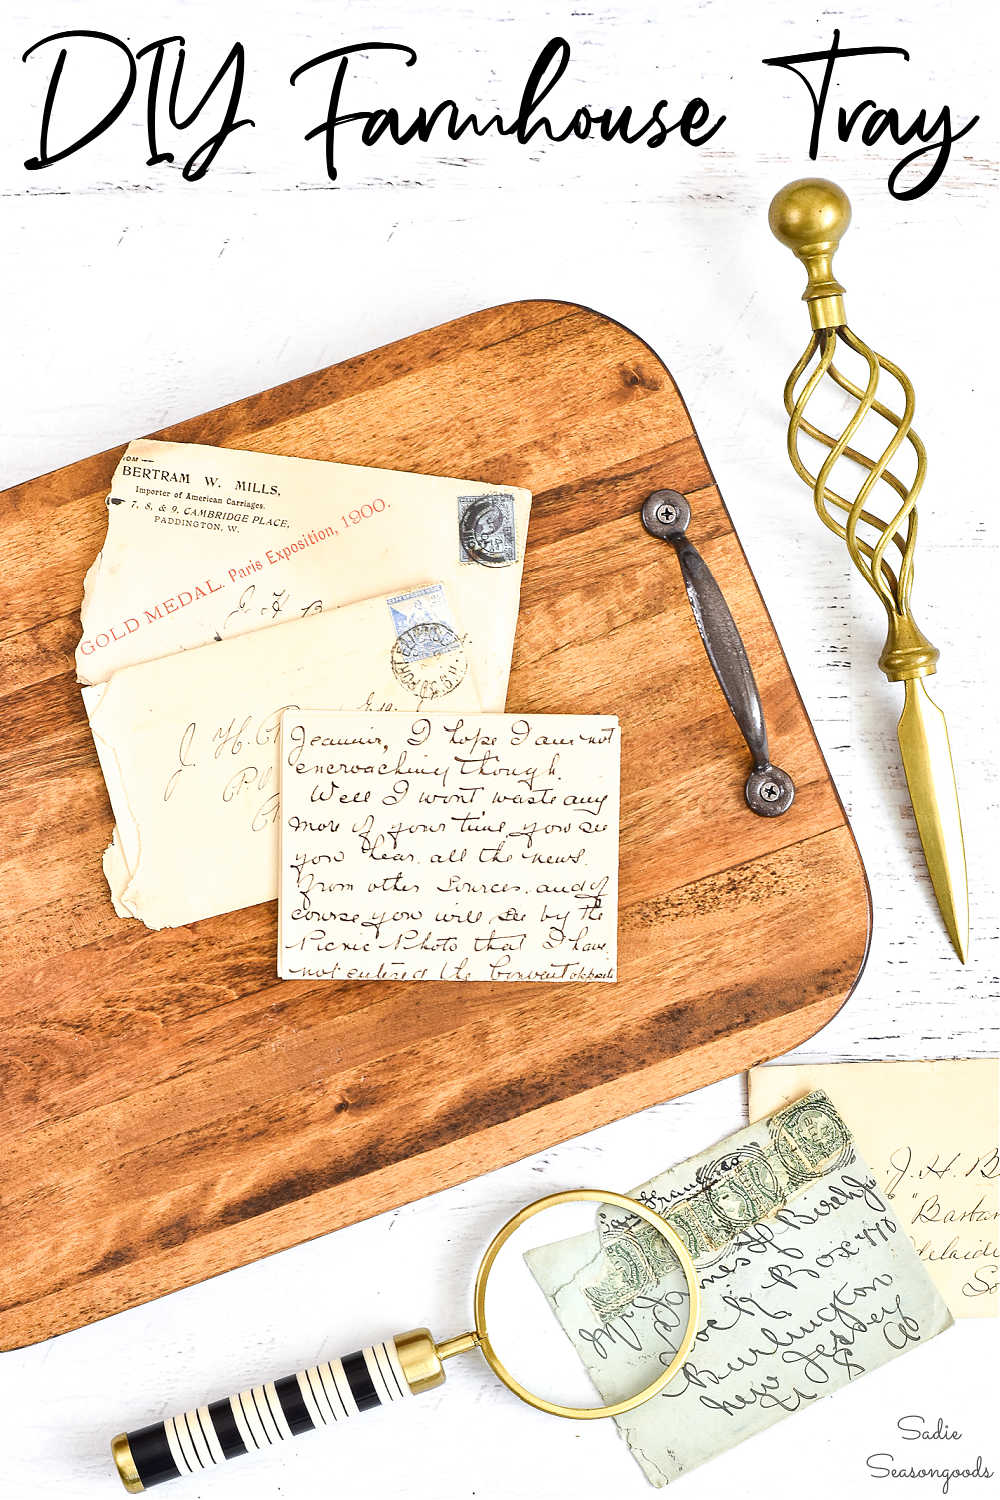 DIY Farmhouse Tray
BERTRAM W. MILLS,
Importer of American Carriages.
7, 8, & 9, CAMBRIDGE PLACE,
PADDINGTON, W.
GOLD MEDAL. Paris Exposition, 1900.
J. H. B
J. H. B
I hope I am not
encroaching though.
Well I wont waste any
more of your time, you see
you hear all the news
from other sources, and of
course you will see by the
Picnic Photo that I have
not entered the Convent
San Francisco
Mr James H Birch Jr
Lock Box 770
Burlington
New Jersey
J. H. B
delaide
So
Sadie
Seasongoods